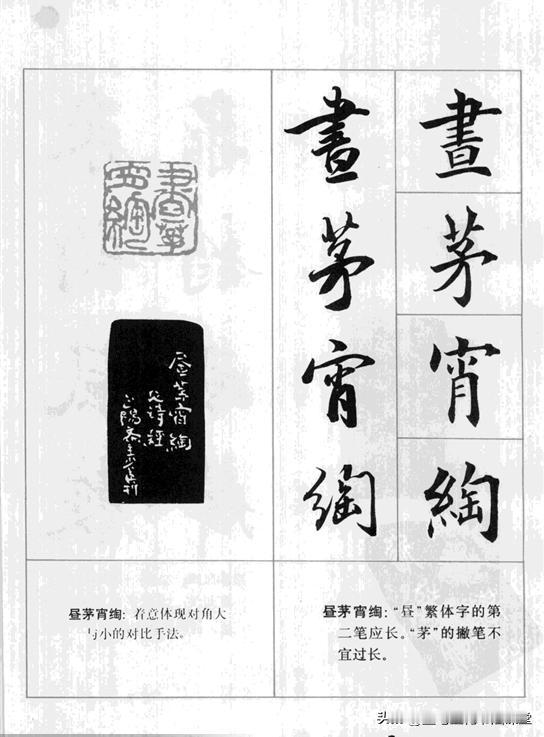 晝
茅
宵
綯
晝
茅
宵
綯
晝茅
宵綯
昼茅宵綯
见诗经
昼茅宵绹：“昼”繁体字的第
二笔应长。“茅”的撇笔不
宜过长。
昼茅宵绹：着意体现对角大
与小的对比手法。
头条